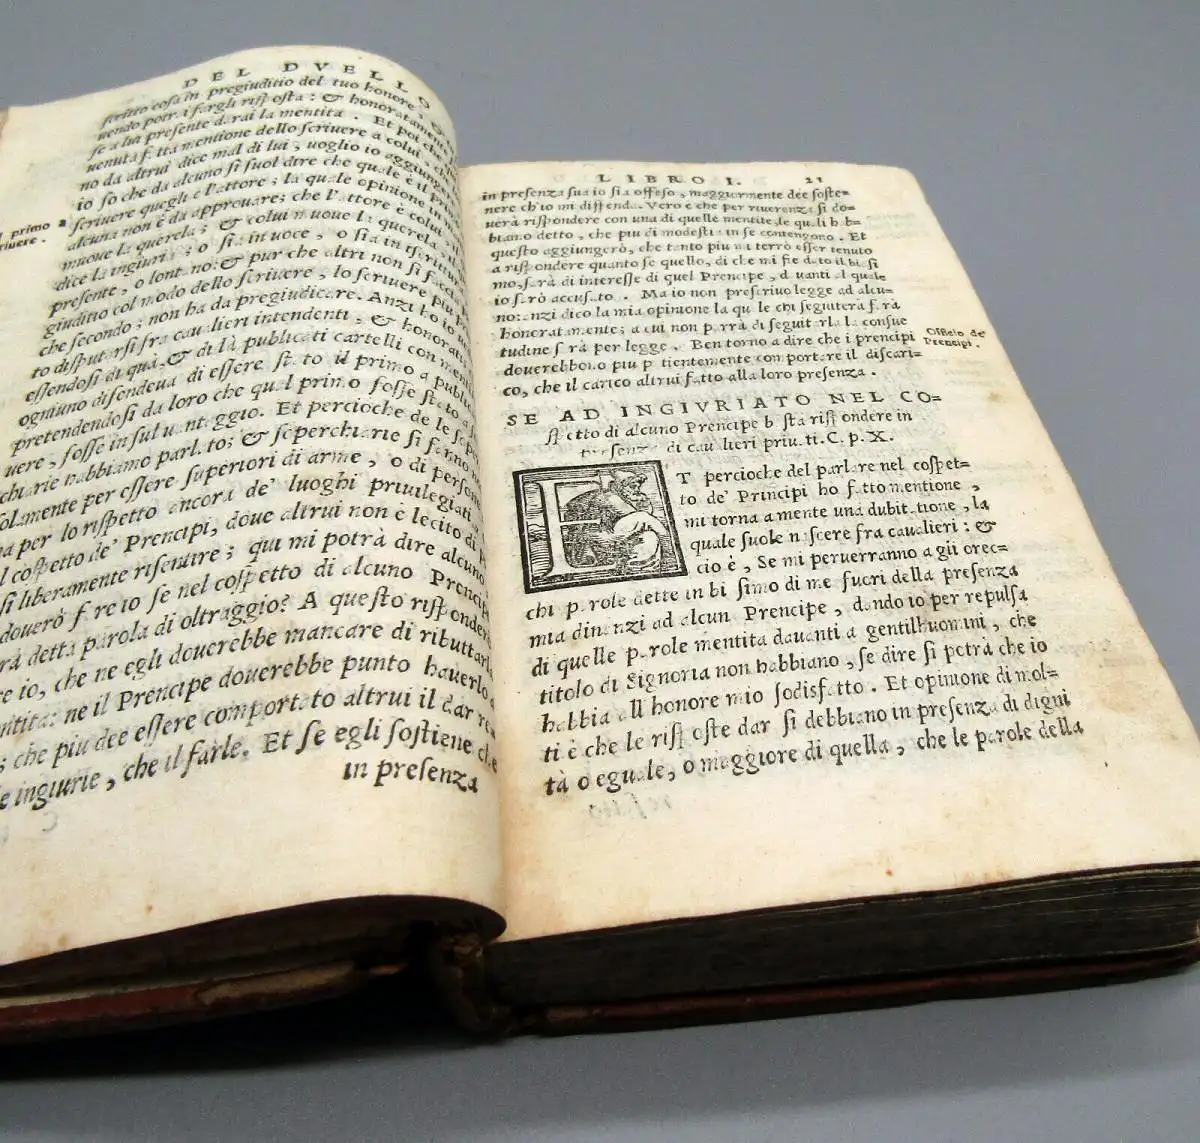 DEL DVELLO
scritto cosa in pregiuditio del tuo honore,
uendo potrai fargli risposta: & honoratamente
se a lui presente darai la mentita. Et poi che
uenuta fatta mentione dello scriuere a colui, che
no da altrui dice mal di lui; uoglio io aggiungere
io so che da alcuno si suol dire che quale è il primo a
scriuere quegli è l'attore; la quale opinione in
alcuna non è da approuare; che l'attore è colui,
muoue la querela; & colui muoue la querela, il
dice la ingiuria; o sia in uoce, o sia in iscrittura
presente, o lontano: & pur che altri non si faccia
giuditio col modo dello scriuere, lo scriuere piu
che secondo; non ha da pregiudicare. Anzi ho io
to disputarsi fra caualieri intendenti, & honorati
essendosi di quà, & di là publicati cartelli con
ogniuno difendeua di essere stato il primo a publi
pretendendosi da loro che qual primo fosse stato a
uere, fosse in sul uantaggio. Et percioche de le
chiarie habbiamo parlato; & soperchiarie si fanno
solamente per essere superiori di arme, o di persone
ma per lo rispetto ancora de' luoghi priuilegiati,
l cospetto de' Prencipi, doue altrui non è lecito di
si liberamente risentire; qui mi potrà dire alcuno
douerò fare io se nel cospetto di alcuno Prencipe
rà detta parola di oltraggio? A questo risponderà
re io, che ne egli douerebbe mancare di ributtarla
ntita: ne il Prencipe douerebbe punto hauerlo a
; che piu dee essere comportato altrui il dar re-
e ingiurie, che il farle. Et se egli sostiene che
in presenza
l primo a
riuere.
LIBRO I. 21
in presenza sua io sia offeso, maggiormente dee soste-
nere ch'io mi diffenda. Vero è che per riuerenza si do-
uerà rispondere con una di quelle mentite le quali hab-
biamo detto, che piu di modestia in se contengono. Et
questo aggiungerò, che tanto piu mi terrò esser tenuto
a rispondere quanto se quello, di che mi fie dato il biasi
mo, sarà di interesse di quel Prencipe, dauanti al quale
io sarò accusato. Ma io non prescriuo legge ad alcu-
no: anzi dico la mia opinione la quale chi seguiterà farà
honoratamente; a cui non parrà di seguitarla la consue
tudine sarà per legge. Ben torno a dire che i prencipi
douerebbono piu patientemente comportare il discari-
co, che il carico altrui fatto alla loro presenza.
Officio de'
Prencipi.
SE AD INGIVRIATO NEL CO-
spetto di alcuno Prencipe basta rispondere in
presenza di caualieri priuati. Cap. X.
ET percioche del parlare nel cospet-
to de' Principi ho fatto mentione,
mi torna a mente una dubitatione, la
quale suole nascere fra caualieri: &
cio è, Se mi peruerranno a gli orec-
chi parole dette in biasimo di me fuori della presenza
mia dinanzi ad alcun Prencipe, dando io per repulsa
di quelle parole mentita dauanti a gentilhuomini, che
titolo di Signoria non habbiano, se dire si potrà che io
habbia all honore mio sodisfatto. Et opinione di mol-
ti è che le risposte dar si debbiano in presenza di digni
tà o eguale, o maggiore di quella, che le parole della